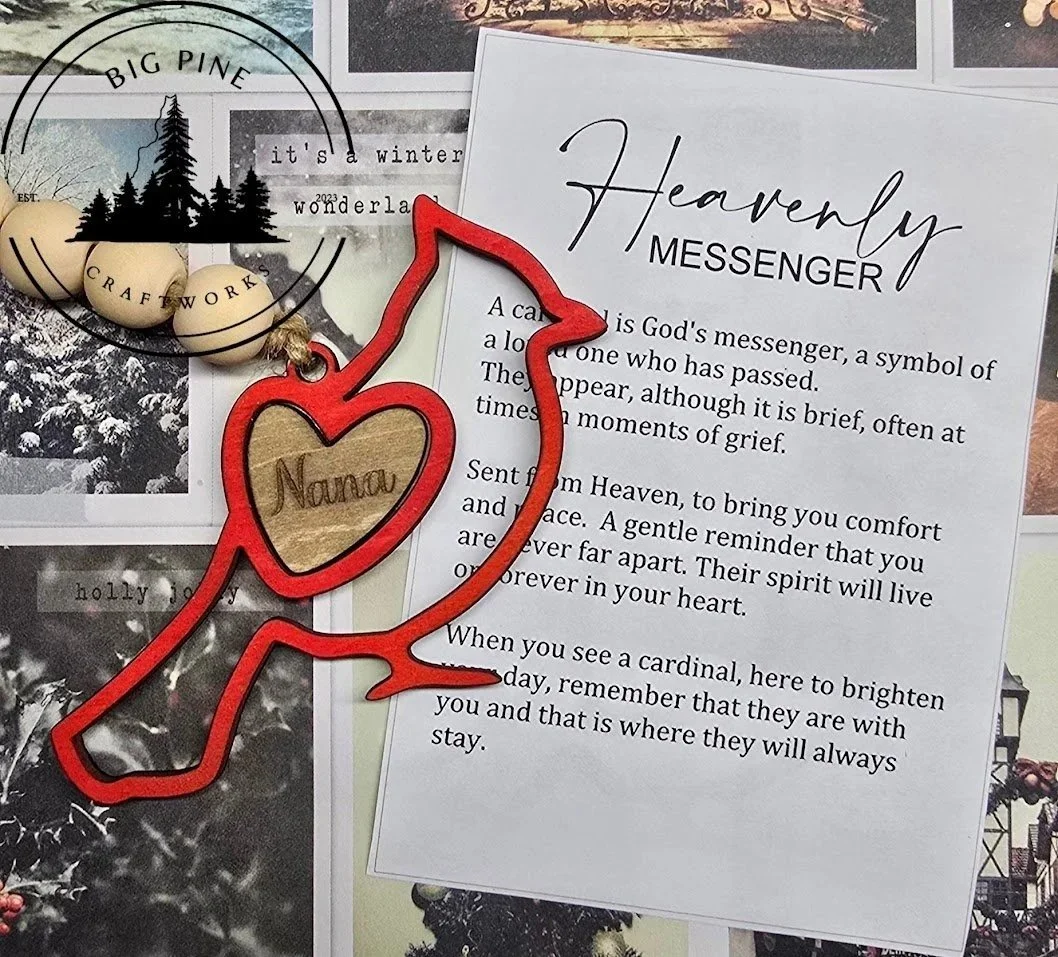 BIG PINE
EST.
2023
CRAFTWORKS
it's a winter
wonderla
holly jo y
Nana
Heavenly
MESSENGER
A ca l is God's messenger, a symbol of
a lo d one who has passed.
They appear, although it is brief, often at
times in moments of grief.
Sent from Heaven, to bring you comfort
and peace. A gentle reminder that you
are never far apart. Their spirit will live
on forever in your heart.
When you see a cardinal, here to brighten
your day, remember that they are with
you and that is where they will always
stay.